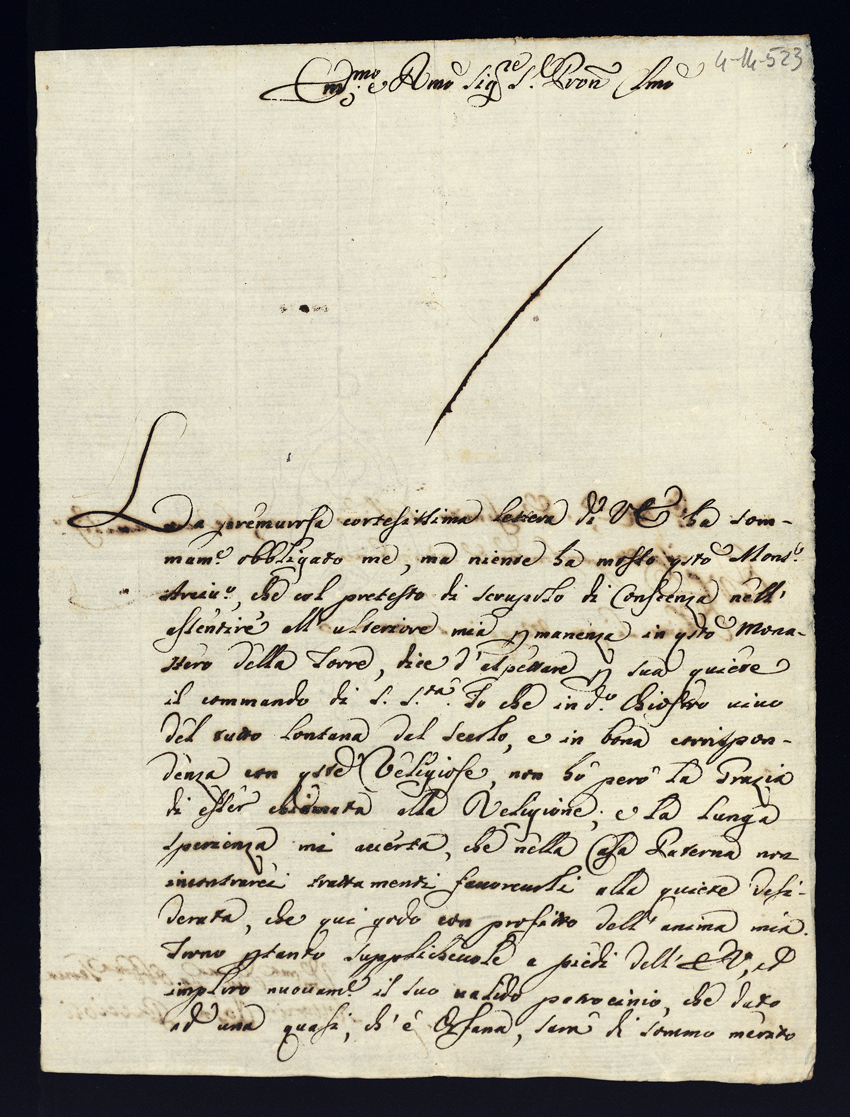 4-14-523
Em.mo e R.mo Sig.re S.r Pron Cmo
La premurosa cortesissima lettera di V E ha som-
mam.e obbligato me, ma niente ha mosso qsto Mons.r
Arciv.o, che col pretesto di scrupolo di Conscienza nell'
assentire all'ulteriore mia pmanenza in qsto Mona-
stero della Torre, dice d'aspettare p sua quiete
il commando di S. S.tà. Io che in d.o Chiostro vivo
del tutto lontana dal secolo, e in bona corrispon-
denza con qste Religiose, non hò però la Grazia
di esser chiamata alla Religione; e la lunga
sperienza mi accerta, che nella Casa Paterna non
incontrarei trattamenti favorevoli alla quiete desi-
derata, che qui godo con profitto dell'anima mia.
Torno ptanto supplichevole a piedi dell'E V, ed
imploro nuovam.e il suo valido patrocinio, che dato
ad una quasi, ch'è Orfana, sarà di sommo merito